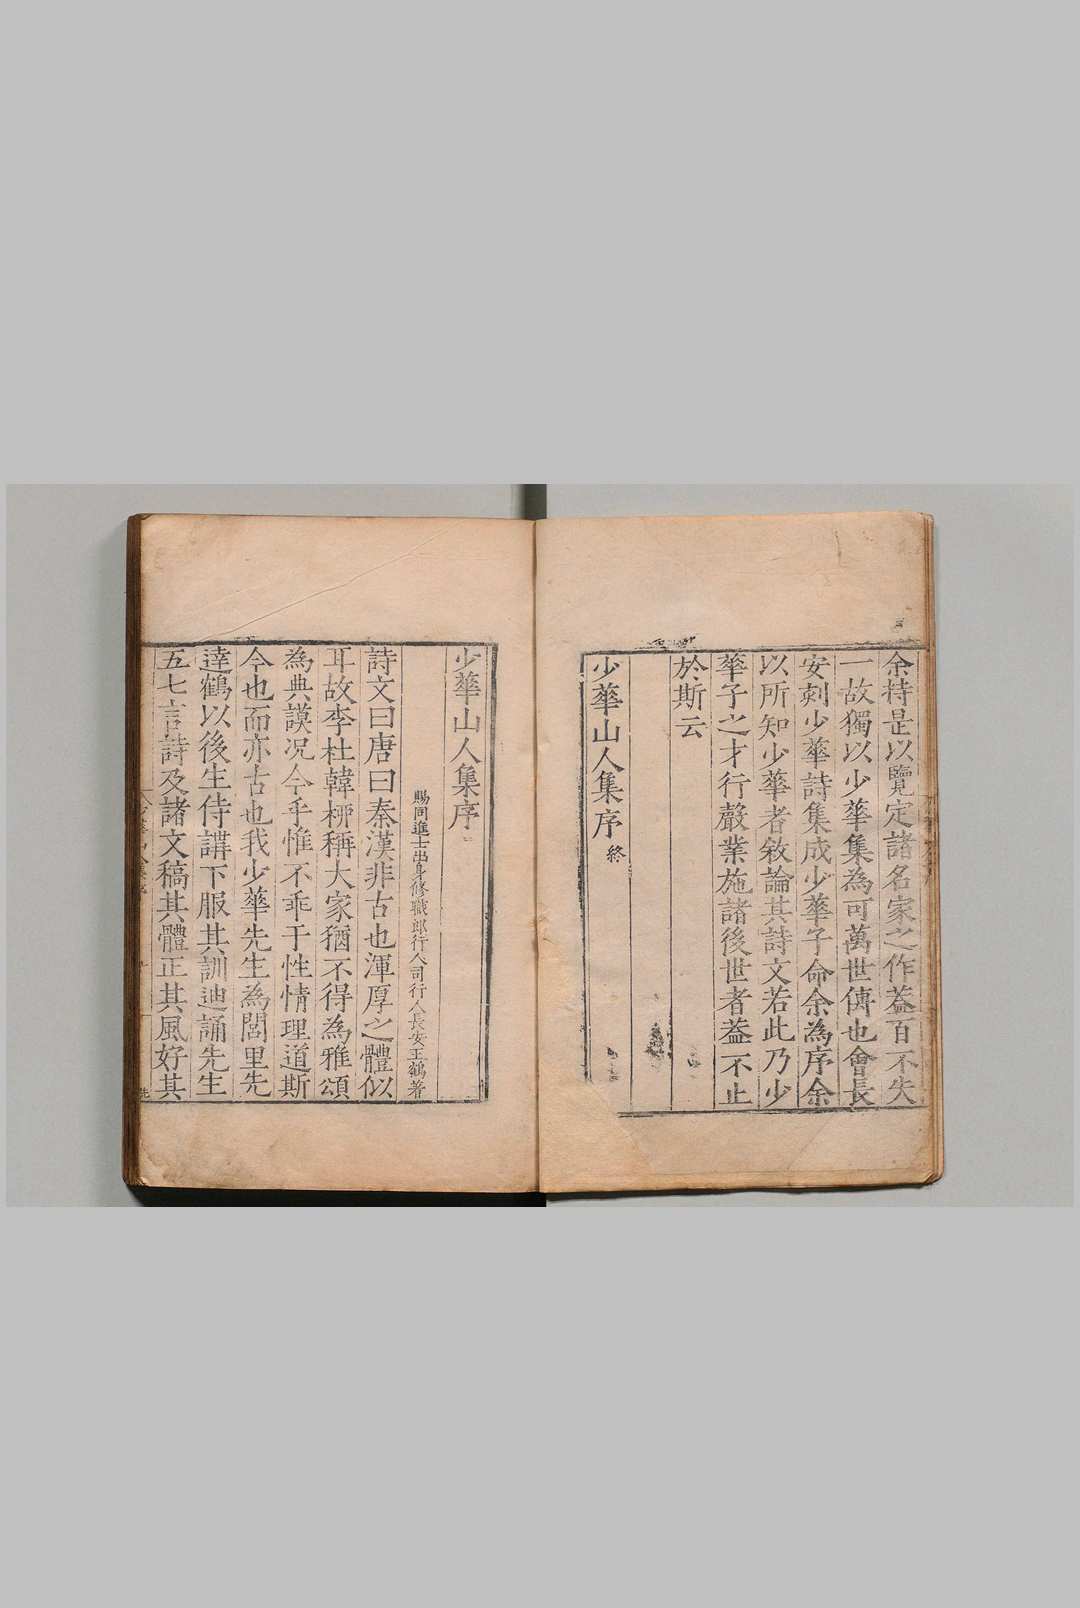 余持是以覽定諸名家之作蓋百不失
一故獨以少華集為可萬世傳也會長
安刻少華詩集成少華子命余為序余
以所知少華者敘論其詩文若此乃少
華子之才行嚴業施諸後世者蓋不止
於斯云
少華山人集序 終
少華山人集序
賜同進士出身修職郎行人司行人長安王鶴著
詩文曰唐曰秦漢非古也渾厚之體似
耳故李杜韓栁稱大家猶不得為雅頌
為典謨况今乎惟不乖于性情理道斯
今也而亦古也我少華先生為閭里先
達鶴以後生侍講下服其訓迪誦先生
五七言詩及諸文稿其體正其風好其